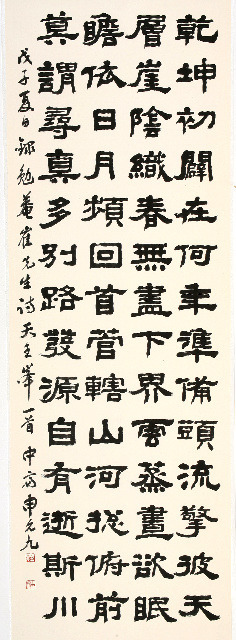 乾坤初闢在何年準備頭流擎彼天
層崖陰織春無盡下界雲蒸晝欲眠
瞻依日月頻回首管轄山河摠俯前
莫謂尋真多別路發源自有逝斯川
戊子夏日錄勉菴崔先生詩天王峯一首中齋申允九